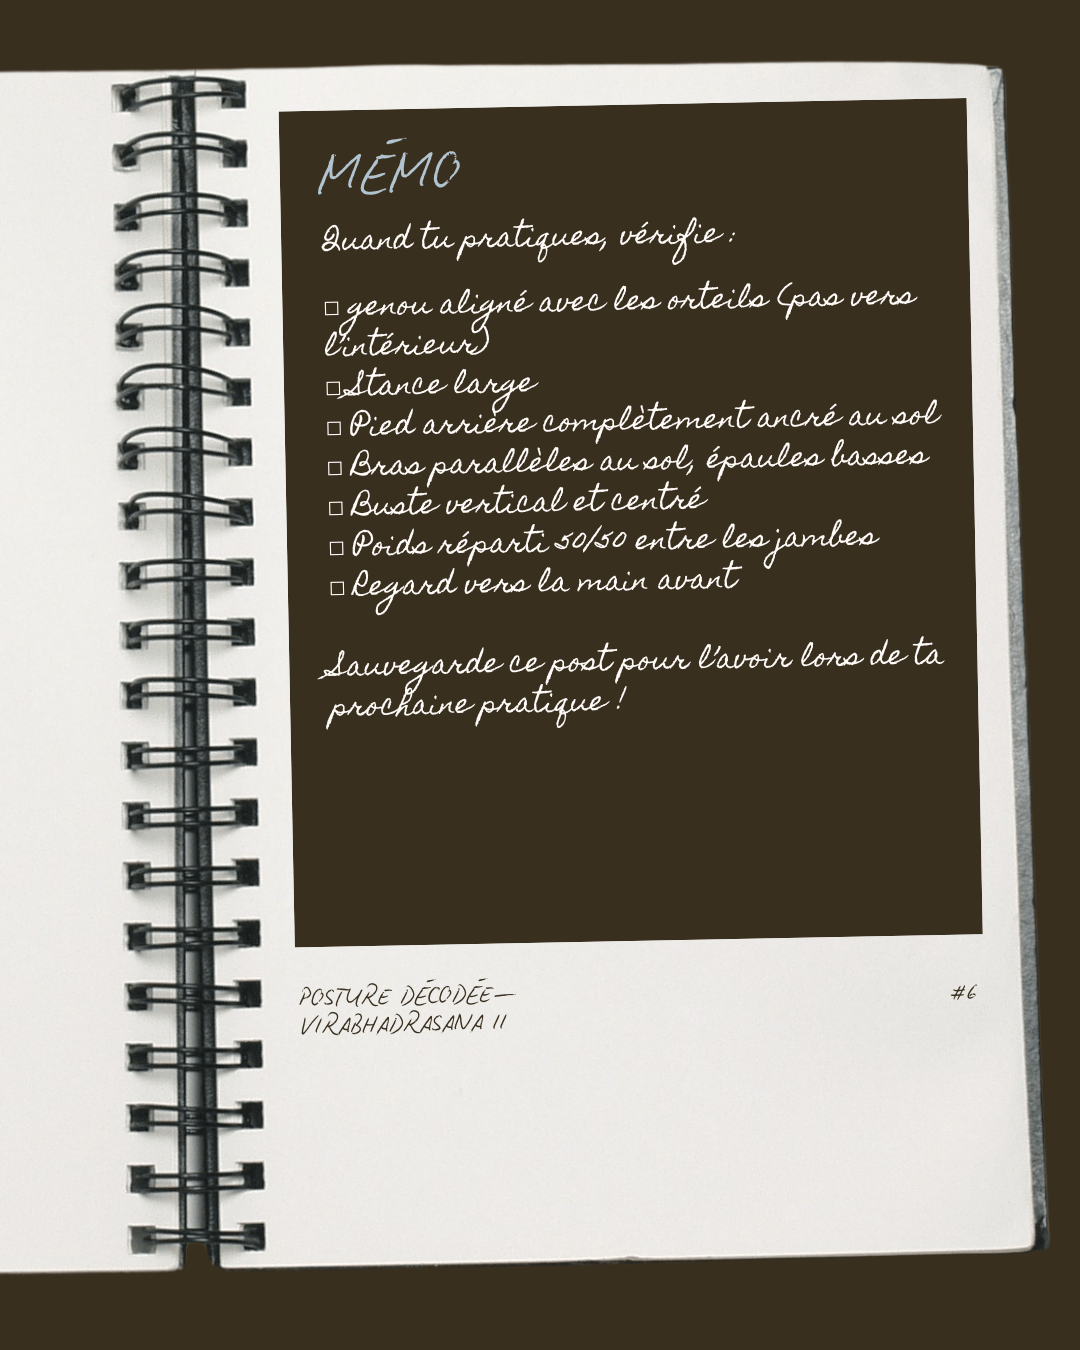 MÉMO
Quand tu pratiques, vérifie :
□ genou aligné avec les orteils (pas vers
l'intérieur)
□ Stance large
□ Pied arrière complètement ancré au sol
□ Bras parallèles au sol, épaules basses
□ Buste vertical et centré
□ Poids réparti 50/50 entre les jambes
□ Regard vers la main avant
Sauvegarde ce post pour l'avoir lors de ta
prochaine pratique !
POSTURE DÉCODÉE—
VIRABHADRASANA II
#6